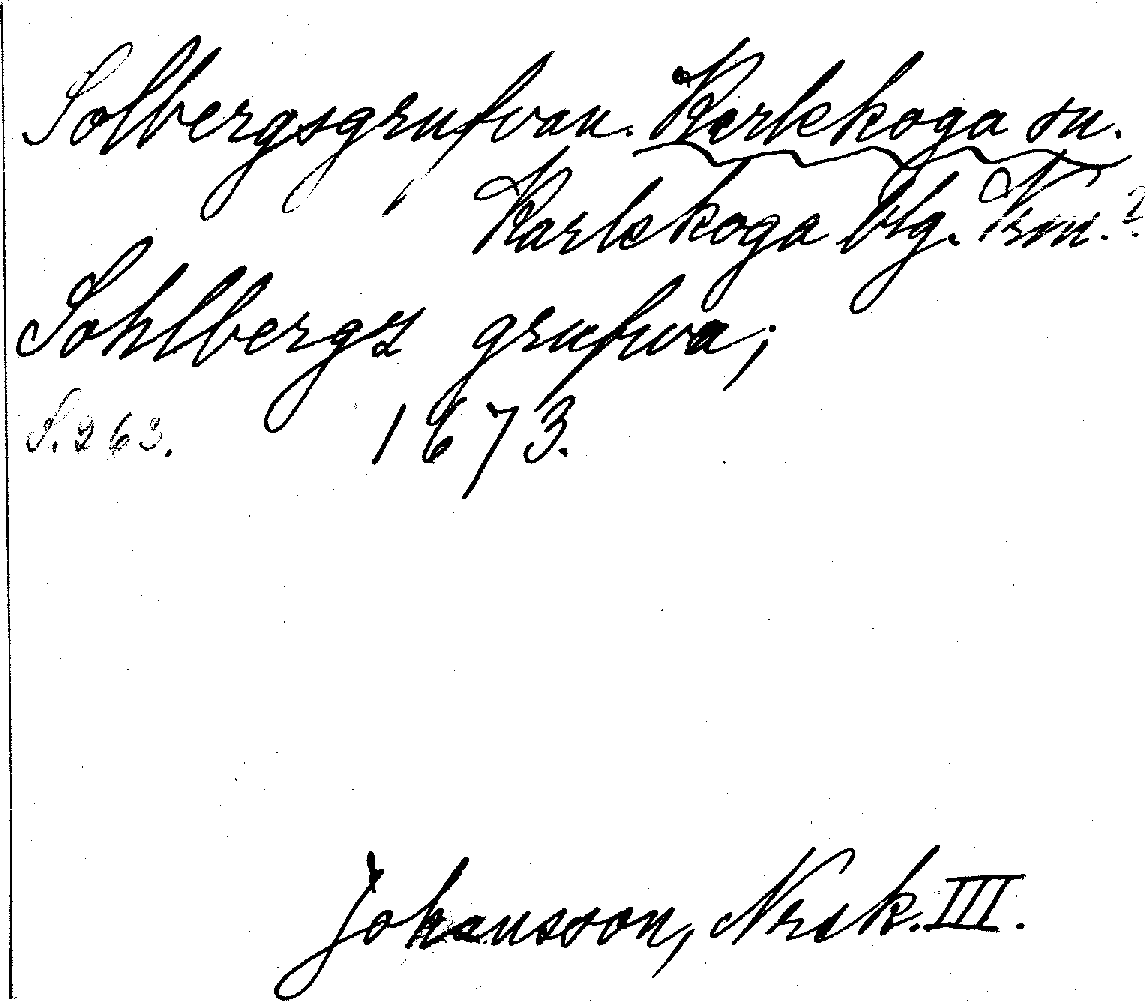 Solbergsgrufvan. Karlskoga sn.
Karlskoga brg. Vrm.?
Sohlbergz grufwa;
S. 263. 1673.
Johansson, Nrsk. III.